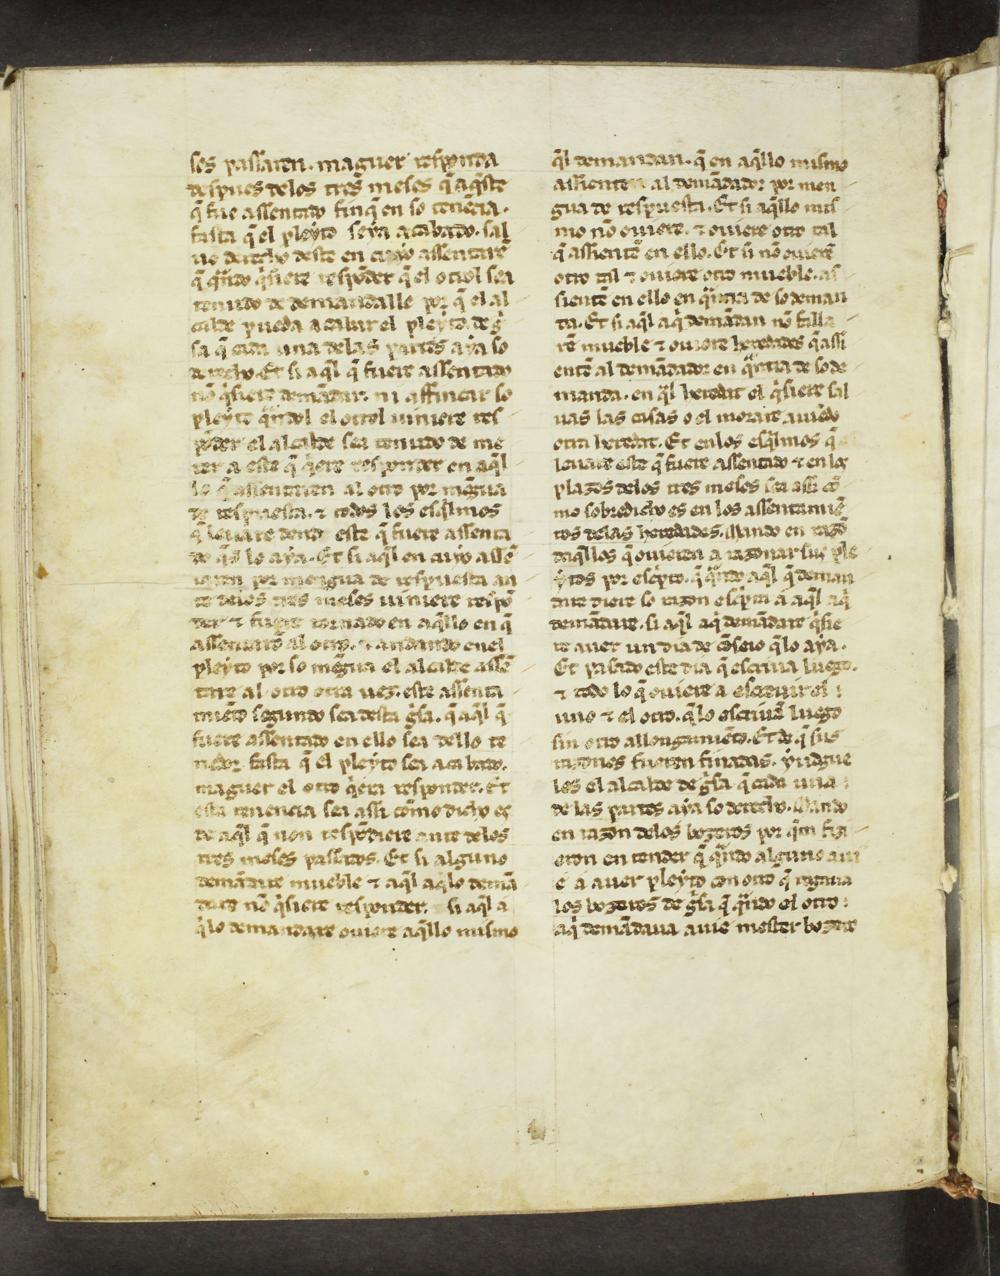 ses passaren. maguer responda
despues delos tres meses q̃ aq̃ste
q̃ fue assentado finq̃ en so tenẽcia.
fasta q̃ el pleyto seya acabado. sal
uo derecho deste en cuyo assentare
q̃ q̃ndo q̃siere respõder q̃ el otrol sea
tenudo de demandalle por q̃ el al
calde pueda acabar el pleyto. de g̃
sa q̃ cada una delas partes aya so
derecho. Et si aq̃l q̃ fuere assentado
nõ q̃siere demãdar. ni affincar so
pleyto q̃ndol el otrol uiniere res
põder el alcalde sea tenudo de me
ter a este q̃ q̃ere responder en aq̃l
lo q̃ assentaren al otro por mẽgua
de respuesta. ⁊ todos los esq̃lmos
q̃ leuare dend este q̃ fuere assenta
do q̃s lo aya. Et si aq̃l en cuyo assẽ
taren por mengua de respuesta an
te delos tres meses uiniere respõ
der ⁊ fuere tornado en aq̃llo en q̃
assentarõ al otro. ⁊ andando enel
pleyto por so mẽgua el alcalde assẽ
tare al otro otra uez. este assenta
miẽto segundo sea desta g̃sa. q̃ aq̃l q̃
fuere assentado en ello sea dello te
nedor fasta q̃ el pleyto sea acabado.
maguer el otro q̃era responder. Et
esta tenencia sea assi como dicho es
de aq̃l q̃ non respõdiere ante delos
tres meses passados. Et si alguno
demãdare mueble ⁊ aq̃l aq̃lo demã
dare nõ q̃siere responder. si aq̃l a
q̃lo demandare ouiere aq̃llo mismo
q̃l demandan. q̃ en aq̃llo mismo
assienten al demãdador por men
gua de respuesta. Et si aq̃llo mis
mo nõ ouiere. ⁊ ouiere otro tal
q̃ assientẽ en ello. Et si nõ ouiere
otro tal ⁊ ouiere otro mueble. as
sientẽ en ello en q̃ntia de so deman
da. Et si aq̃l aq̃ demãdan nõ falla
rẽ mueble ⁊ ouiere heredades q̃ assi
entẽ al demãdador en q̃ntia de so de
manda. en q̃l heredat el q̃siere sal
uas las casas o el morare auiẽdo
otra heredat. Et enlos esq̃lmos q̃
leuare este q̃ fuere assentado ⁊ en los
plazos delos tres meses sea assi co
mo sobredicho es en los assentamiẽ
tos delas heredades. Mando en razõ
daq̃llos q̃ ouieren a razonar sus ple
ytos por esc̃pto. q̃ q̃ndo aq̃l q̃ deman
dare diere so razon esc̃pta a aq̃l aq̃
demãdare. si aq̃l aq̃ demãdare q̃sie
re auer un dia de cõseio q̃lo aya.
Et pasado este dia q̃ escriua luego.
⁊ todo lo q̃ ouiere a escreuir el
uno ⁊ el otro. q̃lo escriuã luego
sin otro allongamiẽto. Et de q̃ sus
razones fueren finadas. yudgue
los el alcalde de g̃sa q̃ cada una
de las partes aya so derecho. Mando
en razon delos bozeros por q̃m fizi
eron entender q̃ q̃ndo alguno aui
e a auer pleyto con otro q̃ rogaua
los bozeros de g̃sa q̃ q̃ndo el otro
aq̃ demãdaua auie mester bozero